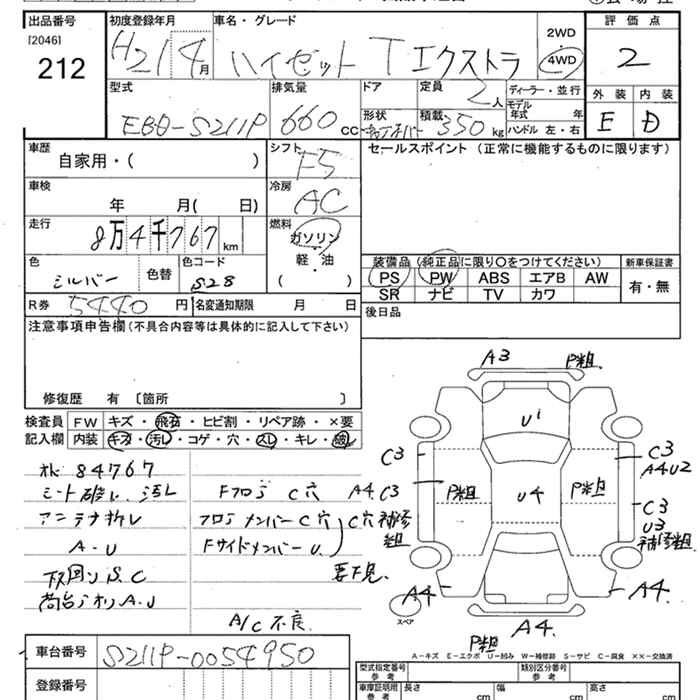 出品番号 初度登録年月 車名・グレード 評価点
[2046] 212
H21 4月 ハイゼット T エクストラ 2WD 4WD 2
型式 排気量 ドア 定員 2人 ディーラー・並行 外装 内装
EBD-S211P 660cc 形状 積載 350kg モデル年式 年 E D
ハンドル 左・右
車歴 シフト F5 セールスポイント (正常に機能するものに限ります)
自家用・( )
車検 冷房 AC
年 月( 日)
走行 燃料
8万4千767km ガソリン・軽・油 ( )
色 色替 色コード 装備品 (純正品に限り○をつけてください) 新車保証書
シルバー S28 PS PW ABS エアB AW 有・無
SR ナビ TV カワ
R券 5440円 名変通知期限 月 日 後日品
注意事項申告欄(不具合内容等は具体的に記入して下さい)
修復歴 有 〔箇所 〕
検査員 FW キズ・飛石・ヒビ割・リペア跡・×要
記入欄 内装 キズ・汚レ・コゲ・穴・スレ・キレ・破レ
ok 84767
シート破レ、汚レ
アンテナ折レ
A・U
下回リ S.C
荷台 A.U
Fフロア C穴
フロアメンバーC穴
FサイドメンバーU.
C穴補修
要下見
A/C不良
A3 P粗
U1
C3
C3 A4U2
A4. C3
P粗 U4 P粗
C3 U3 補修粗
粗
A4 A4.
スペア
A4.
P粗
A-キズ E-エクボ U-凹み W-補修跡 S-サビ C-腐食 ××-交換済
車台番号 S211P-0054950
登録番号
型式指定番号 参考 類別区分番号 参考
車庫証明用 参考 長さ cm 幅 cm 高さ cm